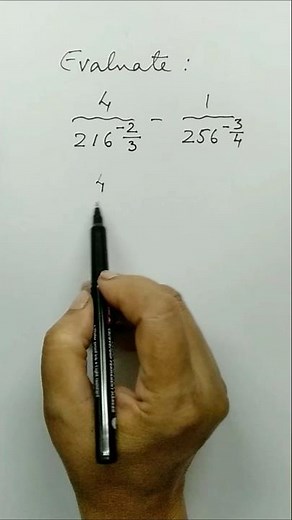 Evaluate :
4/216^(-2/3) - 1/256^(-3/4)
4